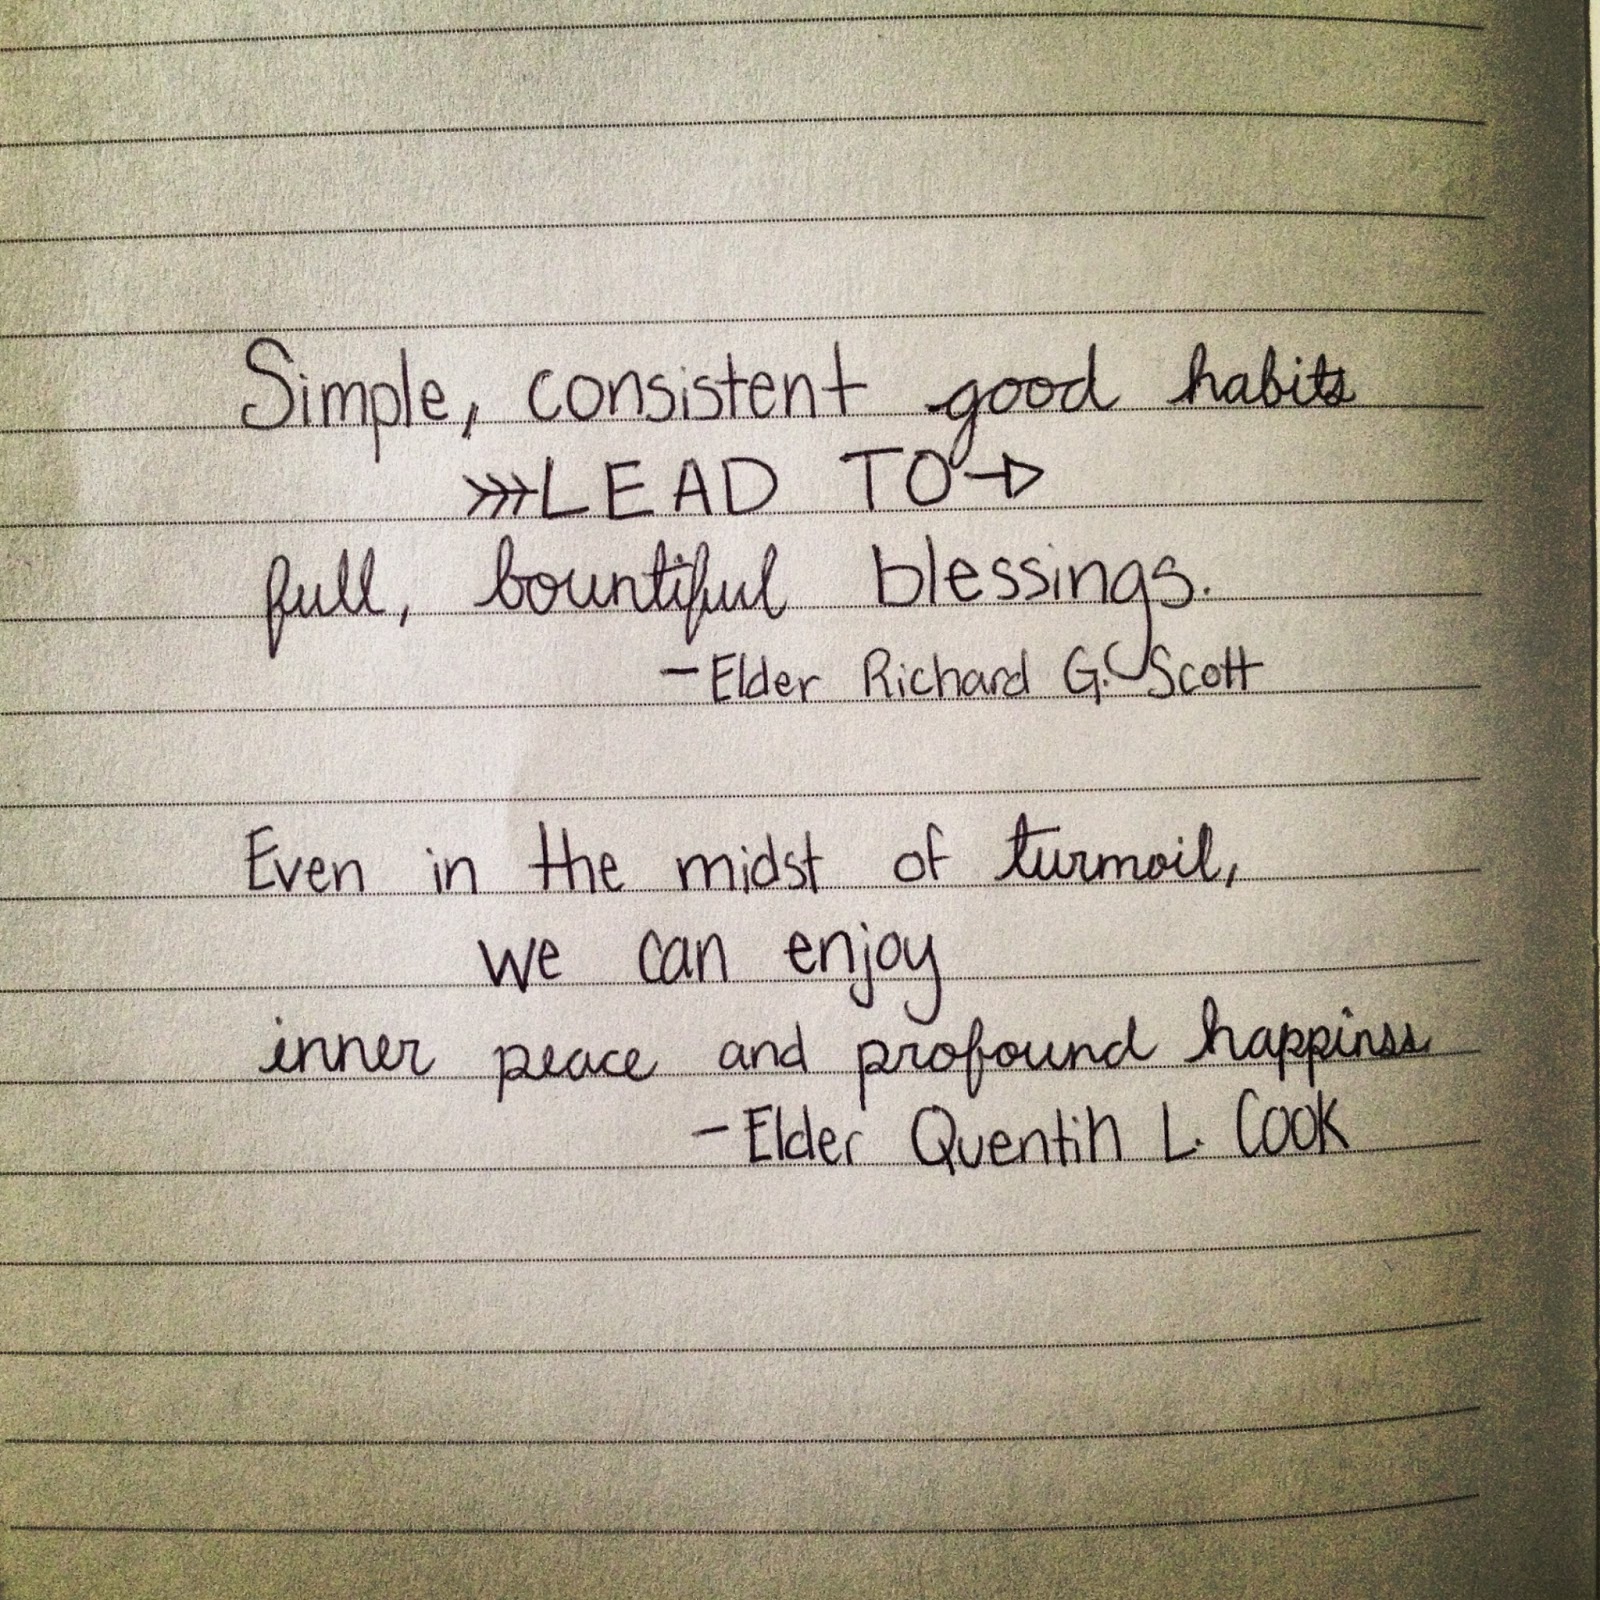 Simple, consistent good habits
LEAD TO
full, bountiful blessings.
-Elder Richard G. Scott
Even in the midst of turmoil,
we can enjoy
inner peace and profound happinss
-Elder Quentin L. Cook